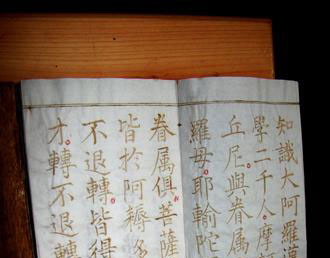 知識大阿羅漢
學二千人摩訶
丘尼與眷属
羅母耶輸陀
眷属俱菩薩
皆於阿耨多
不退轉皆得
才轉不退轉